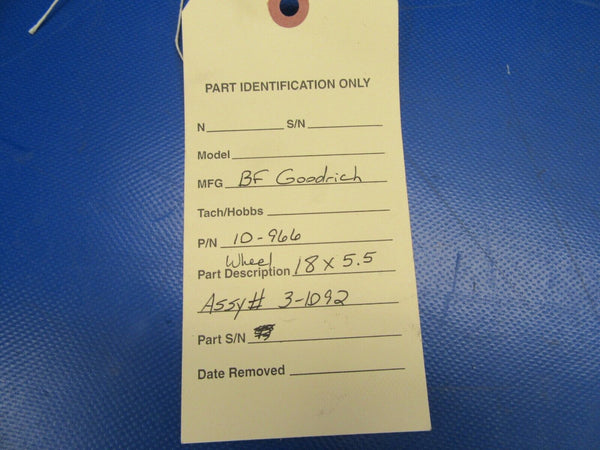 PART IDENTIFICATION ONLY
N S/N
Model
MFG BF Goodrich
Tach/Hobbs
P/N 10-966
Wheel
Part Description 18 x 5.5
Assy# 3-1092
Part S/N
Date Removed